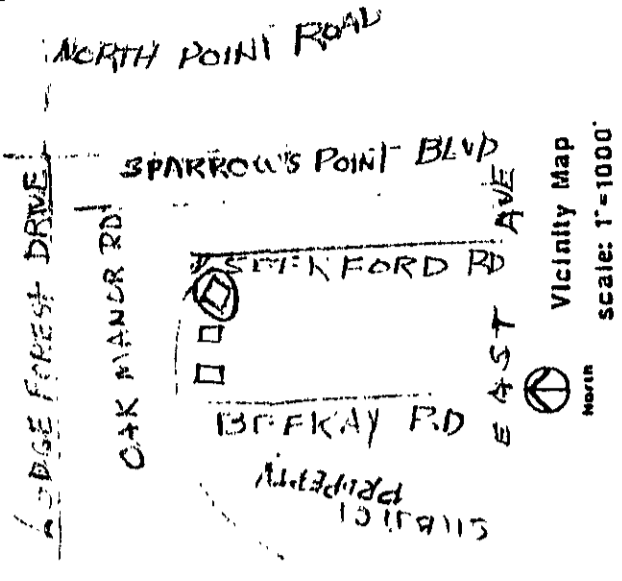 NORTH POINT ROAD
SPARROW'S POINT BLVD
LODGE FOREST DRIVE
OAK MANOR RD
FORD RD
EAST AVE
RD
SUBJECT
PROPERTY
Vicinity Map
scale: 1"=1000'
North